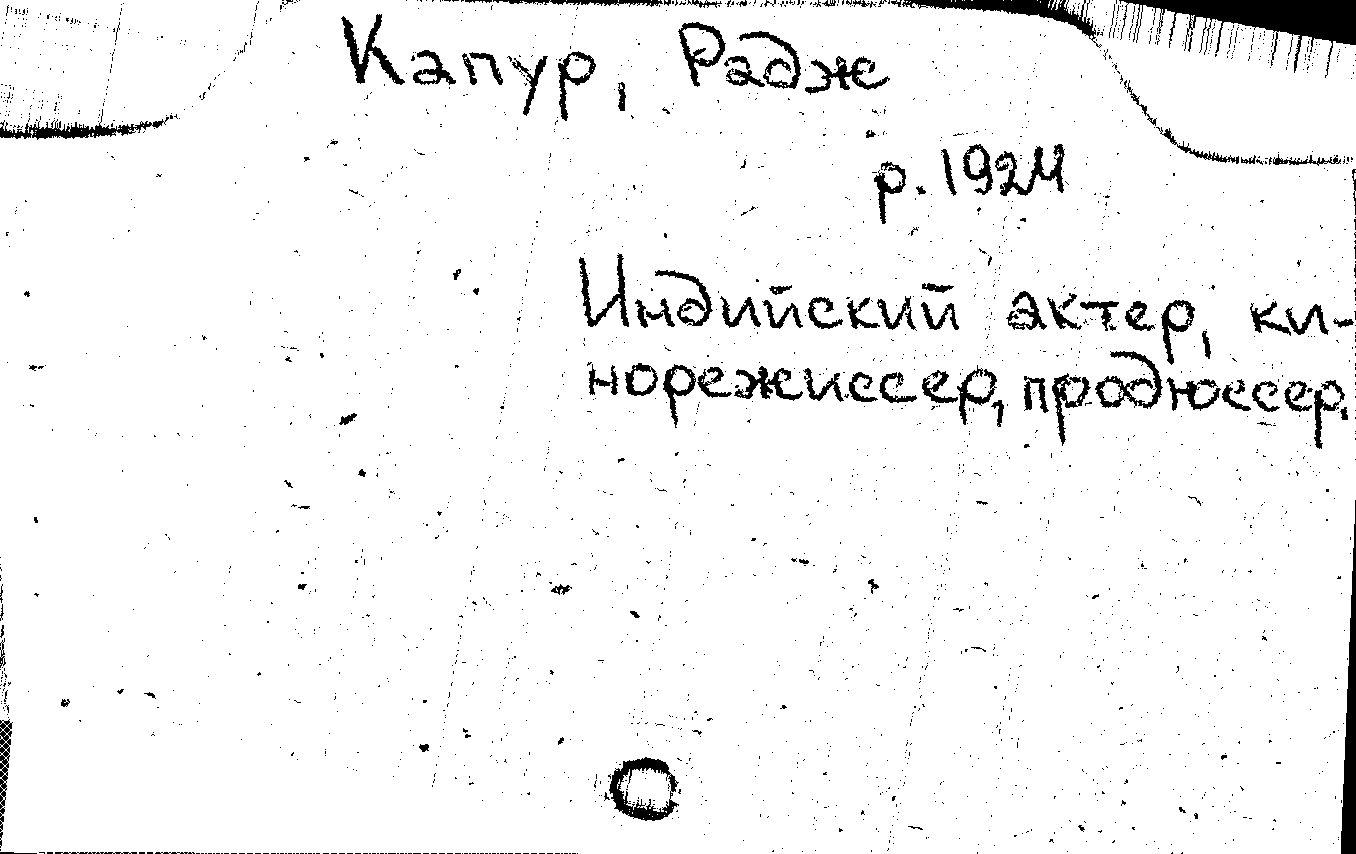 Капур, Радж
р. 1924
Индийский актер, ки-
норежиссер, продюссер.